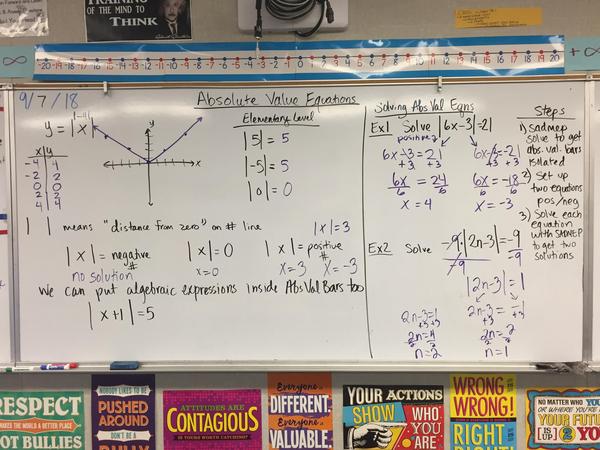 TRAINING
OF THE MIND TO
THINK
∞ -20 -19 -18 -17 -16 -15 -14 -13 -12 -11 -10 -9 -8 -7 -6 -5 -4 -3 -2 -1 0 1 2 3 4 5 6 7 8 9 10 11 12 13 14 15 16 17 18 19 20 +∞
9/7/18
Absolute Value Equations
y = |x|
x | y
-4 | 4
-2 | 2
0 | 0
2 | 2
4 | 4
y
x
Elementary Level
|5| = 5
|-5| = 5
|0| = 0
| | means "distance from zero" on # line
|x| = 3
|x| = negative #
no solution
|x| = 0
x = 0
|x| = positive #
x = 3 x = -3
We can put algebraic expressions inside Abs Val Bars too
|x+1| = 5
Solving Abs Val Eqns
Ex1 Solve |6x-3| = 21
positive
6x-3 = 21
+3 +3
6x = 24
6 6
x = 4
6x-3 = -21
+3 +3
6x = -18
6 6
x = -3
Ex2 Solve -9·|2n-3| = -9
-9 -9
|2n-3| = 1
2n-3 = 1
+3 +3
2n = 4
2 2
n = 2
2n-3 = -1
+3 +3
2n = 2
2 2
n = 1
Steps
1) sadmep
solve to get
abs. val. bars
isolated
2) Set up
two equations
pos/neg
3) Solve each
equation
with SADMEP
to get two
solutions
RESPECT
MAKES THE WORLD A BETTER PLACE
NOT BULLIES
NOBODY LIKES TO BE
PUSHED
AROUND
DON'T BE A
BULLY
ATTITUDES ARE
CONTAGIOUS
IS YOURS WORTH CATCHING?
Everyone is
DIFFERENT.
Everyone is
VALUABLE.
YOUR ACTIONS
SHOW
WHO
YOU
ARE
WRONG
WRONG!
RIGHT
NO MATTER WHO YOU
OR WHERE YOU'RE
YOUR FUTURE
IS [UP] 2 YOU